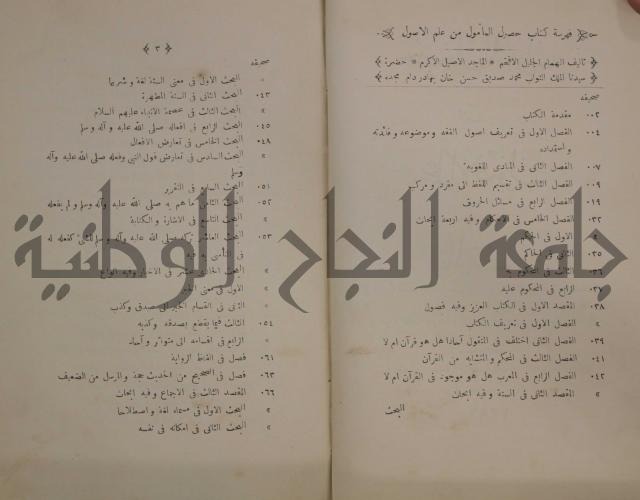 فهرسة كتاب حصول المأمول من علم الاصول
تأليف الهمام الجليل الافخم * الماجد الاصيل الاكرم * حضرة
سيدنا الملك النواب محمد صديق حسن خان بهادر دام مجده
صحيفه
٠٠٢ مقدمة الكتاب
٠٠٤ الفصل الاول فى تعريف اصول الفقه وموضوعه وفائدته
واستمداده
٠٠٧ الفصل الثانى فى المبادى اللغوية
٠٠٩ الفصل الثالث فى تقسيم اللفظ الى مفرد ومركب
٠١٩ الفصل الرابع فى مسائل الحروف
٠٢٢ الفصل الخامس فى الاحكام وفيه اربعة ابحاث
» الاول فى الحكم
٠٢٥ الثانى فى الحاكم
٠٣٦ الثالث فى المحكوم به
٠٣٧ الرابع فى المحكوم عليه
٠٣٨ المقصد الاول فى الكتاب العزيز وفيه فصول
» الفصل الاول فى تعريف الكتاب
٠٣٩ الفصل الثانى اختلف فى المنقول آحادا هل هو قرآن ام لا
٠٤١ الفصل الثالث فى المحكم والمتشابه من القرآن
٠٤٢ الفصل الرابع فى المعرب هل هو موجود فى القرآن ام لا
» المقصد الثانى فى السنة وفيه ابحاث
البحث
﴿ ٣ ﴾
صحيفه
» البحث الاول فى معنى السنة لغة وشرعا
٠٤٣ البحث الثانى فى السنة المطهرة
» البحث الثالث فى عصمة الانبياء عليهم السلام
٠٤٥ البحث الرابع فى افعاله صلى الله عليه وآله وسلم
٠٤٨ البحث الخامس فى تعارض الافعال
» البحث السادس فى تعارض قول النبى وفعله صلى الله عليه وآله
وسلم
٠٥١ البحث السابع فى التقرير
٠٥٢ البحث الثامن ما هم به صلى الله عليه وآله وسلم ولم يفعله
» البحث التاسع فى الاشارة والكتابة
٠٥٣ البحث العاشر تركه صلى الله عليه وآله وسلم للشئ كفعله له
فى التأسى به فيه
» البحث الحادى عشر فى الاخبار وفيه انواع
» الاول فى معنى الخبر
» الثانى فى انقسام الخبر الى صدق وكذب
٠٥٤ الثالث فيما يقطع بصدقه وكذبه
» الرابع فى اقسامه الى متواتر وآحاد
٠٦١ فصل فى الفاظ الرواية
٠٦٣ فصل فى الصحيح من الحديث حجة والمرسل من الضعيف
٠٦٦ المقصد الثالث فى الاجماع وفيه ابحاث
» البحث الاول فى مسماه لغة واصطلاحا
» البحث الثانى فى امكانه فى نفسه
جامعة النجاح الوطنية